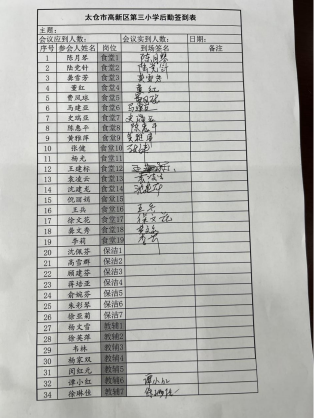 太仓市高新区第三小学后勤签到表
主题:
会议应到人数: 会议实到人数: 日期:
序号 参会人姓名 岗位 到场签名 备注
1 陈月琴 食堂1 陈月琴
2 陆党轩 食堂2
3 龚雪芳 食堂3
4 董红 食堂4 董红
5 曹凤球 食堂5
6 马建亚 食堂6
7 史瑞亚 食堂7
8 陈惠平 食堂8 陈惠平
9 黄雅萍 食堂9
10 张健 食堂10
11 杨光 食堂11
12 王建标 食堂12
13 袁凌云 食堂13
14 沈建龙 食堂14
15 倪丽娟 食堂15
16 王兵 食堂16 王兵
17 徐文花 食堂17 徐文花
18 龚文秀 食堂18
19 李莉 食堂19
20 沈佩芬 保洁1
21 高雪群 保洁2
22 顾建芬 保洁3
23 蒋培亚 保洁4
24 俞婉芬 保洁5
25 朱彩琴 保洁6
26 徐亚菊 保洁7
27 杨文雪 教辅1
28 徐英萍 教辅2
29 韦林 教辅3
30 杨家双 教辅4
31 闵红元 教辅5
32 谭小红 教辅6 谭小红
34 徐琳佳 教辅7